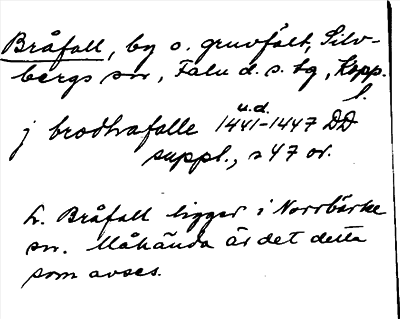 Bråfall, by o. gruvfält, Silv-
bergs sn, Falu d. s. tg, Kopp.
l.
j brodhrafalle 1441-1447 u.d. DD
suppl., s 47 or.
L. Bråfall ligger i Norrbärke
sn. Måhända är det detta
som avses.